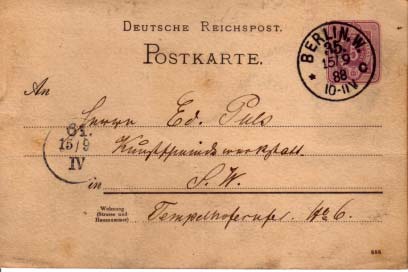 DEUTSCHE REICHSPOST.
POSTKARTE.
BERLIN, W.
35.
15/9
88
10-11V
*
c
An
Herrn Ed. Puls
Kunstschmiedewerkstatt
61.
15/9
IV
in
S. W.
Wohnung
(Strasse und
Hausnummer)
Tempelhoferufer No 6.
888